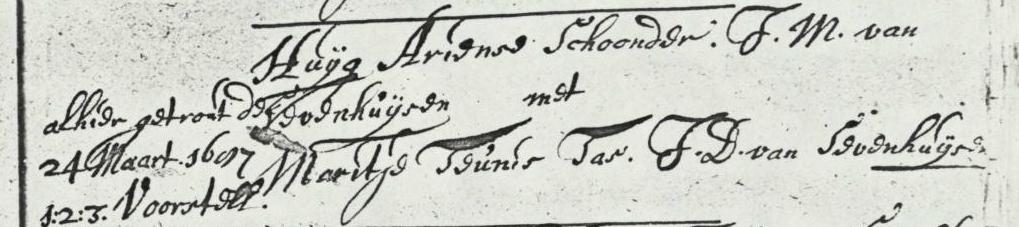 Huÿg Ariense Schoonder. J. M. van
Sevenhuÿsen met
Maritje Teunis Tas. J. D. van Sevenhuÿsen
alhier getrout de
24 Maart 1697
1:2:3. Voorstell.